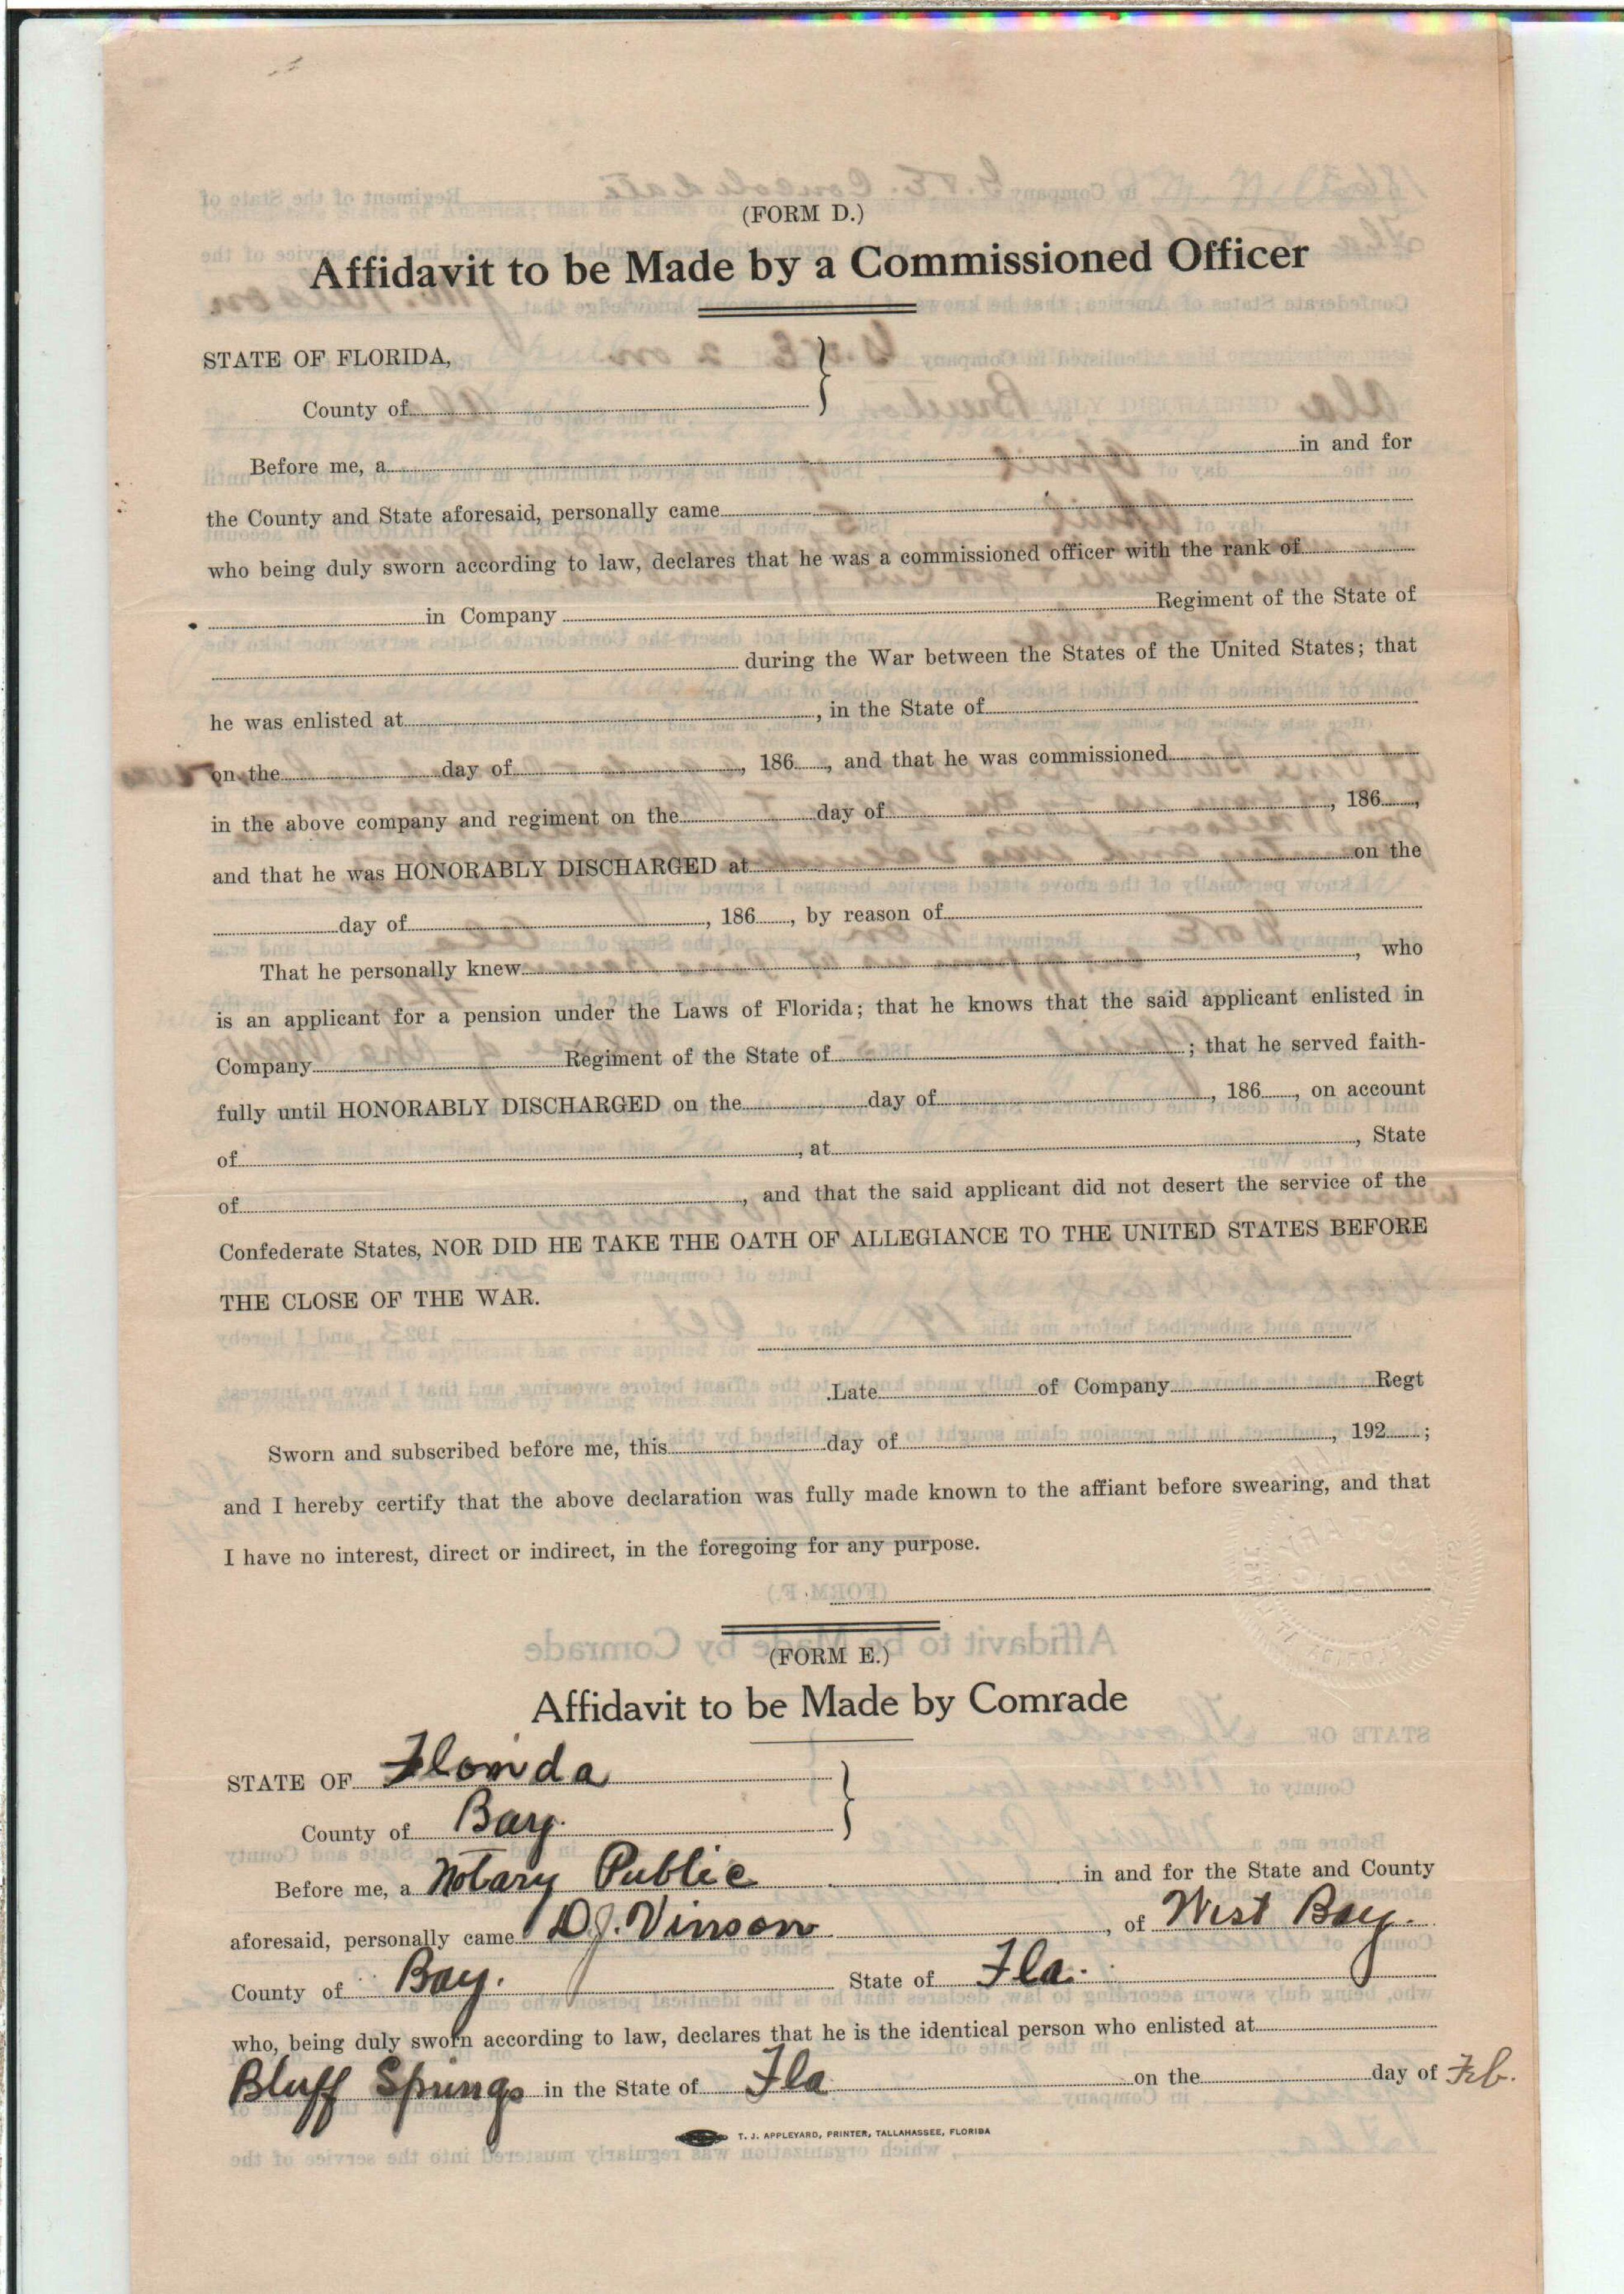 (FORM D.)
Affidavit to be Made by a Commissioned Officer
STATE OF FLORIDA,
County of
Before me, a in and for
the County and State aforesaid, personally came
who being duly sworn according to law, declares that he was a commissioned officer with the rank of
in Company Regiment of the State of
during the War between the States of the United States; that
he was enlisted at , in the State of
on the day of , 186 , and that he was commissioned
in the above company and regiment on the day of , 186 ,
and that he was HONORABLY DISCHARGED at on the
day of , 186 , by reason of
That he personally knew , who
is an applicant for a pension under the Laws of Florida; that he knows that the said applicant enlisted in
Company Regiment of the State of ; that he served faith-
fully until HONORABLY DISCHARGED on the day of , 186 , on account
of , at , State
of , and that the said applicant did not desert the service of the
Confederate States, NOR DID HE TAKE THE OATH OF ALLEGIANCE TO THE UNITED STATES BEFORE
THE CLOSE OF THE WAR.
.Late of Company Regt
Sworn and subscribed before me, this day of , 192 ;
and I hereby certify that the above declaration was fully made known to the affiant before swearing, and that
I have no interest, direct or indirect, in the foregoing for any purpose.
(FORM E.)
Affidavit to be Made by Comrade
STATE OF Florida
County of Bay.
Before me, a Notary Public in and for the State and County
aforesaid, personally came D.J. Vinson , of West Bay.
County of Bay. State of Fla.
who, being duly sworn according to law, declares that he is the identical person who enlisted at
Bluff Springs in the State of Fla on the day of Feb.
T. J. APPLEYARD, PRINTER, TALLAHASSEE, FLORIDA